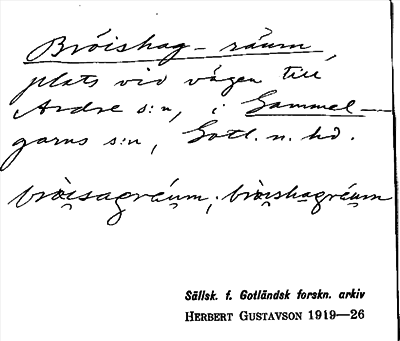 Bröishag-räum,
plats vid vägen till
Ardre s:n, i Gammel-
garns s:n, Gotl. n. hd.
bròisagráum, bròishagráum
Sällsk. f. Gotländsk forskn. arkiv
HERBERT GUSTAVSON 1919—26